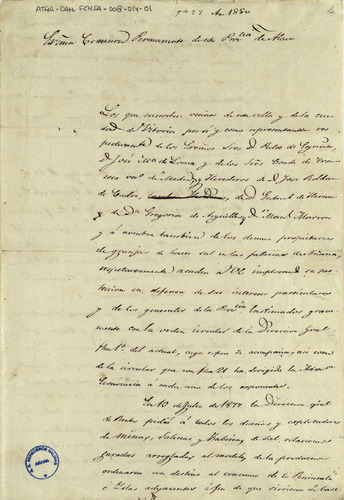 ATHA-DAH-FCMSA-008-014-01
1880
Excma Comisión Permanente de esta Provcia de Alava
Los que suscriben vecinos de esta villa y de la ciu
dad de Vitoria por si y como representantes res
pectivamente de los Señores Dres. D. Pedro de Egaña,
D. José Ma de Lama y de los Sres Conde de
de Madrid y Herederos de D. Jose Roldan
de Cadiz, de D. Gabriel de
y Da Gregoria de y Manl
y á nombre tambien de los demas propietarios
de granjas de hacer sal en las salinas de Añana,
respetuosamente acuden á VE implorando su pro
teccion en defensa de sus intereses particulares
y de los generales de la Provcia lastimados grave
mente con la orden circular de la Direccion Genl
fha 1o del actual, cuya copia se acompaña, así como
de la circular que con fha 21 ha dirigido la Admon
Economica á cada uno de los esponentes.
En 10 de Julio de 1877 la Direccion gral
de Rentas pidió á todos los dueños y esplotadores
de minas, Salinas y Fabricas de Sal, relaciones
juradas arregladas al modelo de la produccion
ordinaria con destino al consumo de la Peninsula
é Islas adyacentes á fin de que sirvieran de base